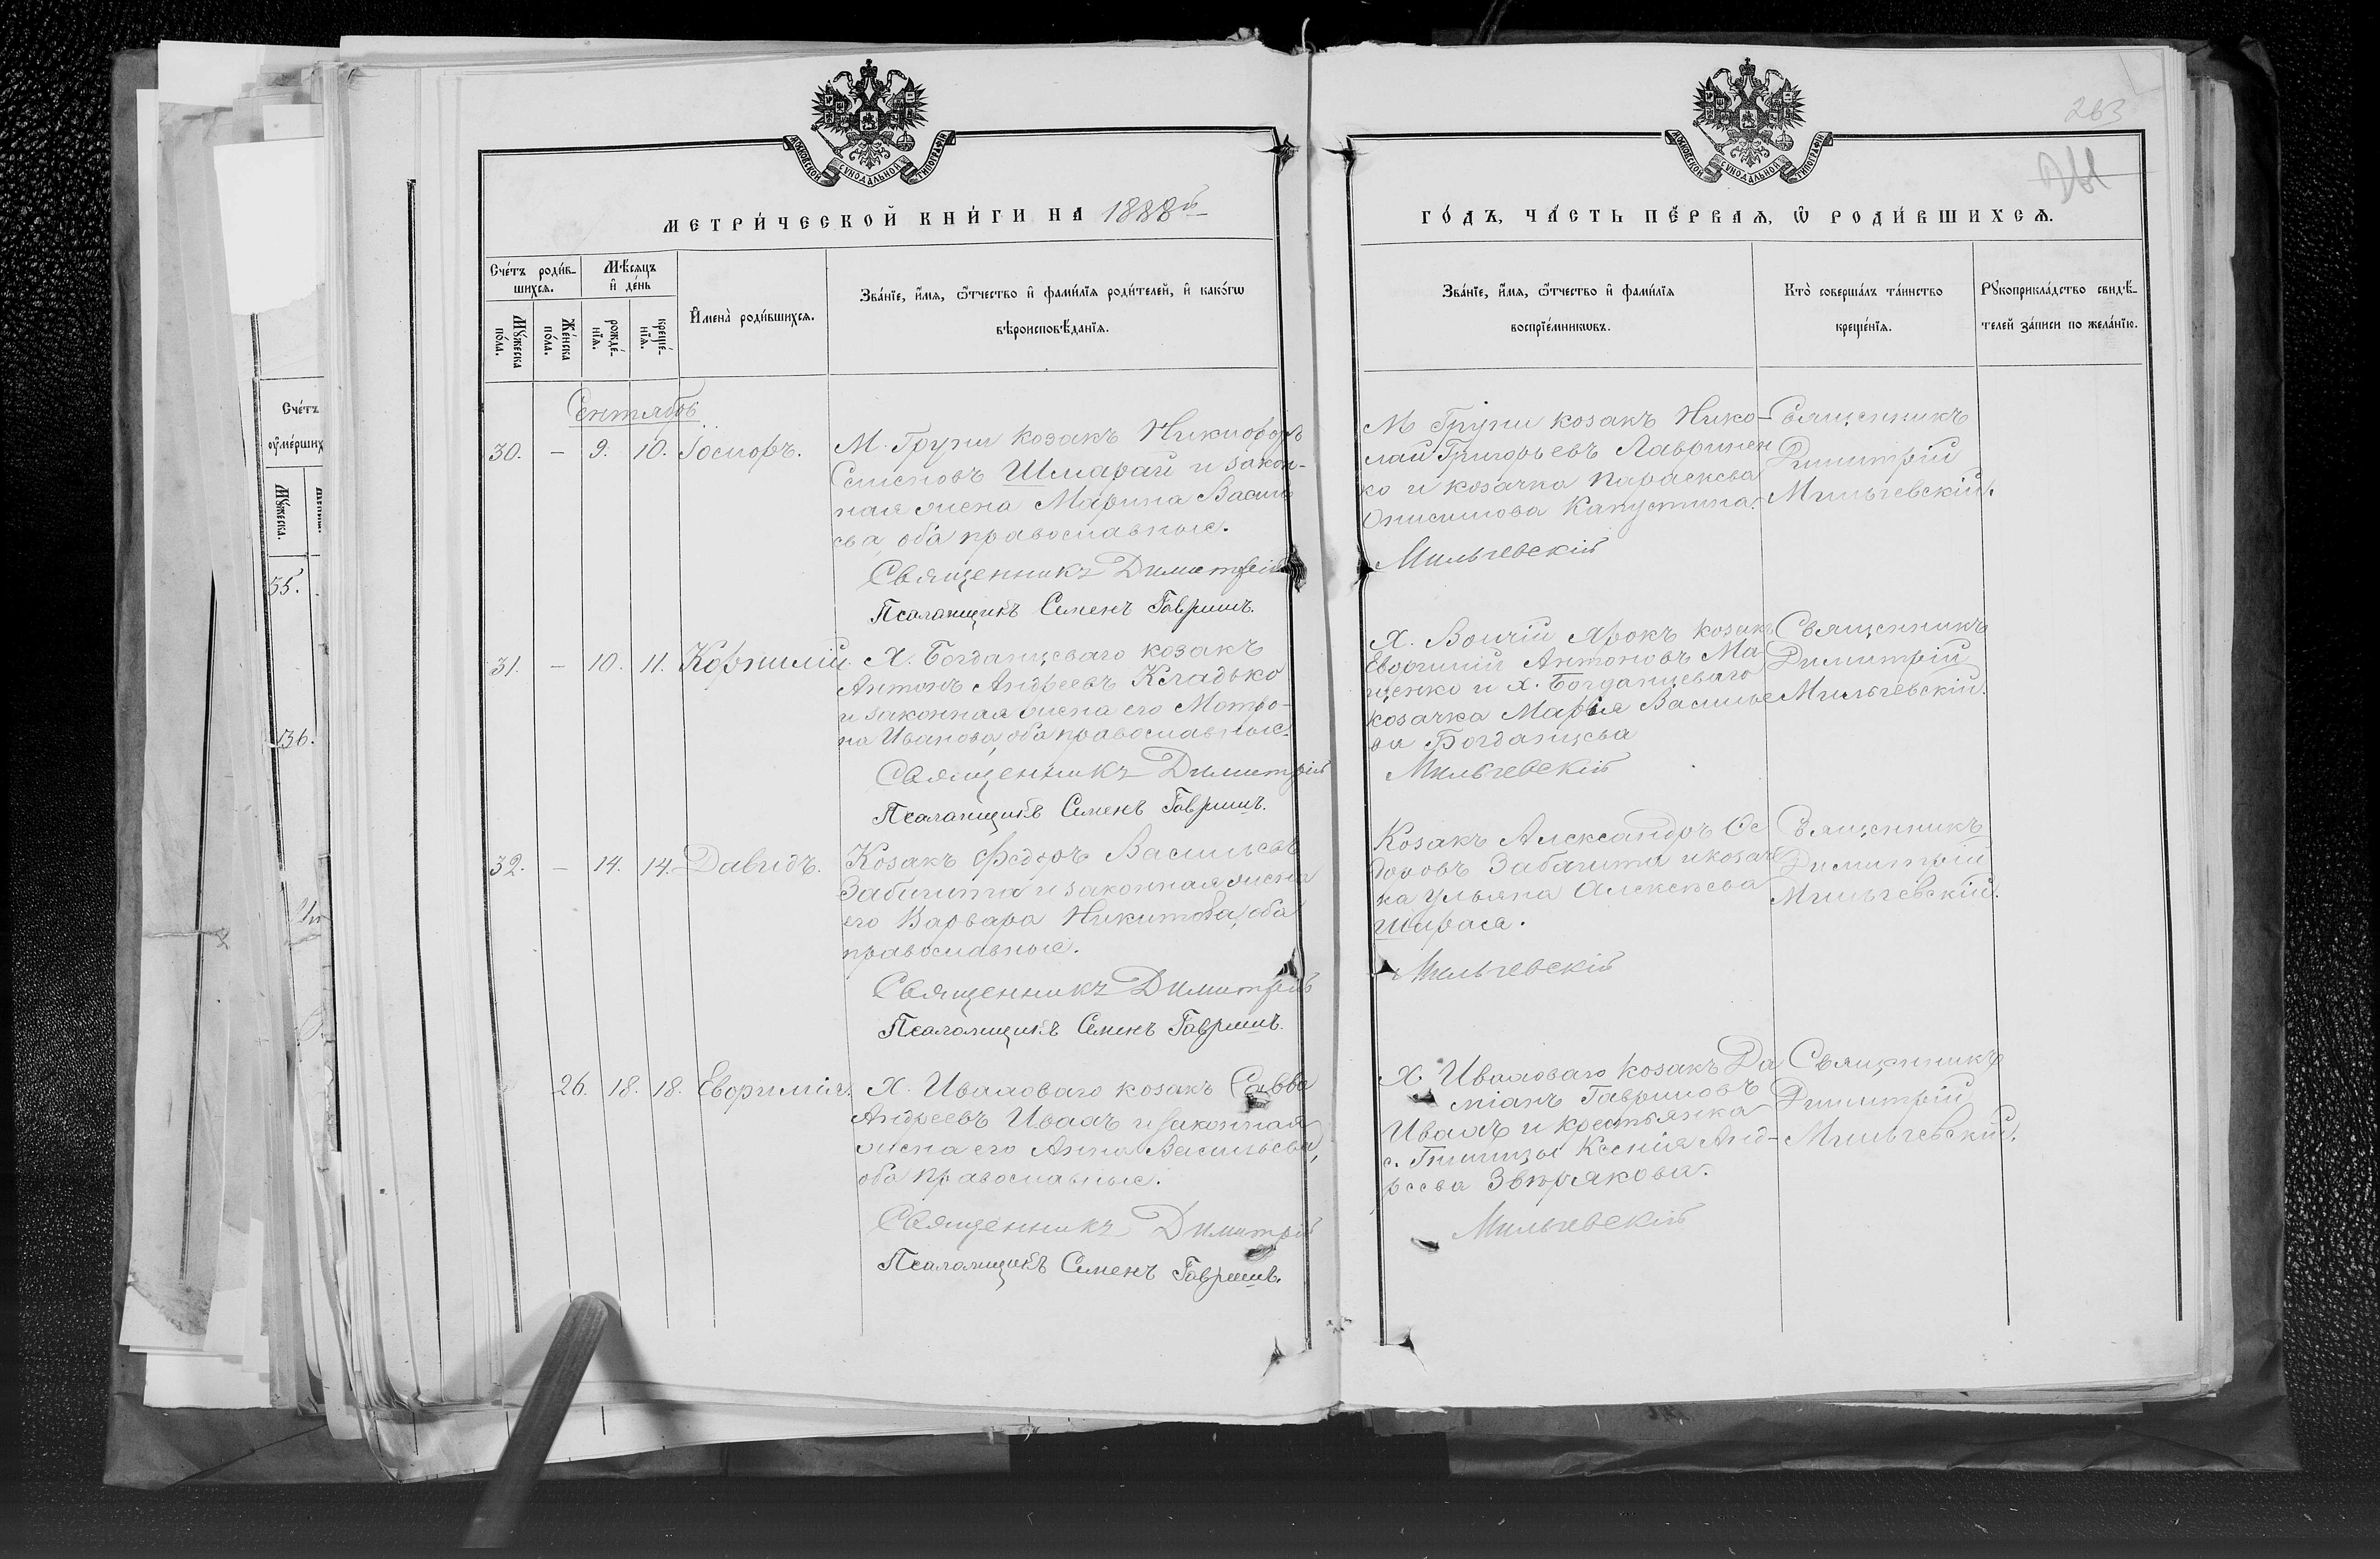 263
МОСКОВСКОЙ СУНОДАЛЬНОЙ ТИПОГРАФІИ
МОСКОВСКОЙ СУНОДАЛЬНОЙ ТИПОГРАФІИ
МЕТРИ́ЧЕСКОЙ КНИ́ГИ НА 1888й
ГО́ДЪ, ЧА́СТЬ ПЕ́РВАѦ, Ѡ РОДИ́ВШИХСѦ.
Сче́тъ роди́в-
шихсѧ.
Мꙋ́жеска по́ла.
Же́нска по́ла.
Мѣ́сѧцъ
и҆ де́нь
рожде́-
нїѧ.
креще́-
нїѧ.
И҆мена̀ роди́вшихсѧ.
Зва́нїе, и҆́мѧ, ѻ҆́тчество и҆ фами́лїѧ роди́телей, и҆ како́гѡ
вѣроисповѣ́данїѧ.
Зва́нїе, и҆́мѧ, ѻ҆́тчество и҆ фами́лїѧ
воспрїе́мникѡвъ.
Кто̀ соверша́лъ та́инство
креще́нїѧ.
Рꙋкоприкла́дство свидѣ́-
телей за́писи по жела́нїю.
Сентябрь
30. — 9. 10. Іосифъ.
М. Груни козакъ Никифоръ
Семеновъ Шмарай и закон-
ная жена Марина Василь
ева, оба православные.
Священникъ Димитрій
Псаломщикъ Семенъ Гавришъ.
М Груни козакъ Нико-
лай Григорьевъ Лавринен
ко и козачка Параскева
Онисимова Капустина.
Мильчевскій
Священникъ
Димитрій
Мильчевскій.
31. — 10. 11. Корнилій.
Х. Богданцеваго козакъ
Антонъ Андреевъ Кладько
и законная жена его Матро-
на Иванова, оба православные.
Священникъ Димитрій
Псаломщикъ Семенъ Гавришъ.
Х. Волчій Ярокъ козакъ
Евфимій Антоновъ Ма
щенко и х. Богданцеваго
козачка Марія Василье
ва Богданцева
Мильчевскій
Священникъ
Димитрій
Мильчевскій.
32. — 14. 14. Давидъ.
Козакъ Федоръ Васильевъ
Забигита и законная жена
его Варвара Никитова, оба
православные.
Священникъ Димитрій
Псаломщикъ Семенъ Гавришъ.
Козакъ Александръ Фе
доровъ Забагита и козач
ка Ульяна Алексеева
Мильчевскій
Священникъ
Димитрій
Мильчевскій.
26. 18. 18. Евфимія.
Х. Иваловаго козакъ Савва
Андреевъ Ивахъ и законная
жена его Анна Васильева,
оба православные.
Священникъ Димитрій
Псаломщикъ Семенъ Гавришъ.
Х. Иваловаго козакъ Да
міанъ Гавриловъ
Ивахъ и крестьянка
Ксенія Анд-
реева Звѣрякова.
Мильчевскій
Священникъ
Димитрій
Мильчевскій.
Сче́тъ
ᲂу҆ме́рших
Мꙋ́жеска.
55.
136.